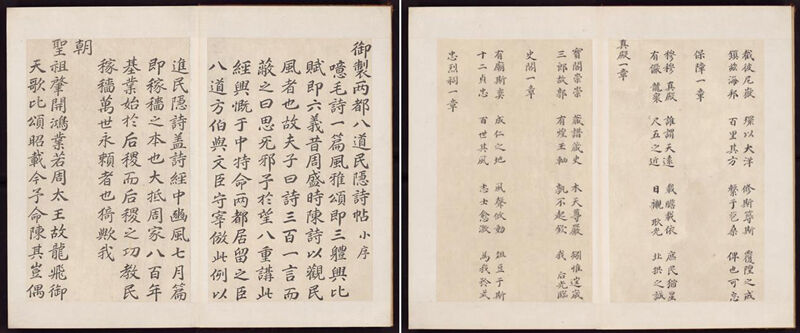 御製兩都八道民隱詩帖 小序
噫毛詩一篇風雅頌即三體興比
賦即六義昔周盛時陳詩以觀民
風者也故夫子曰詩三百一言而
蔽之曰思无邪予於望八重講此
經興慨于中特命兩都居留之臣
八道方伯與文臣守宰倣此例以
進民隱詩盖詩經中豳風七月篇
即稼穡之本也大抵周家八百年
基業始於后稷而后稷之功教民
稼穡萬世永賴者也猗歟我
朝
聖祖肇開鴻業若周太王故龍飛御
天歌比頌昭載今予命陳其豈偶
截彼尼嶽 環以大洋 修斯葺斯 覆隍之戒
鎭玆海邦 百里其方 繫于苞桑 俾也可忘
保障一章
穆穆真殿 誰謂天遠 載瞻載依 庶民猶星
有儼龍袞 尺五之近 日襯耿光 北拱之誠
真殿一章
寶閣崇崇 藏譜藏史 木天尊嚴
三郎故都 有煌玉軸 孰不起欽 我后光臨
史閣一章
有廟斯奐 成仁之地 風聲攸動 俎豆于斯
十二貞忠 百世其風 志士愈激 爲我於
忠烈祠一章